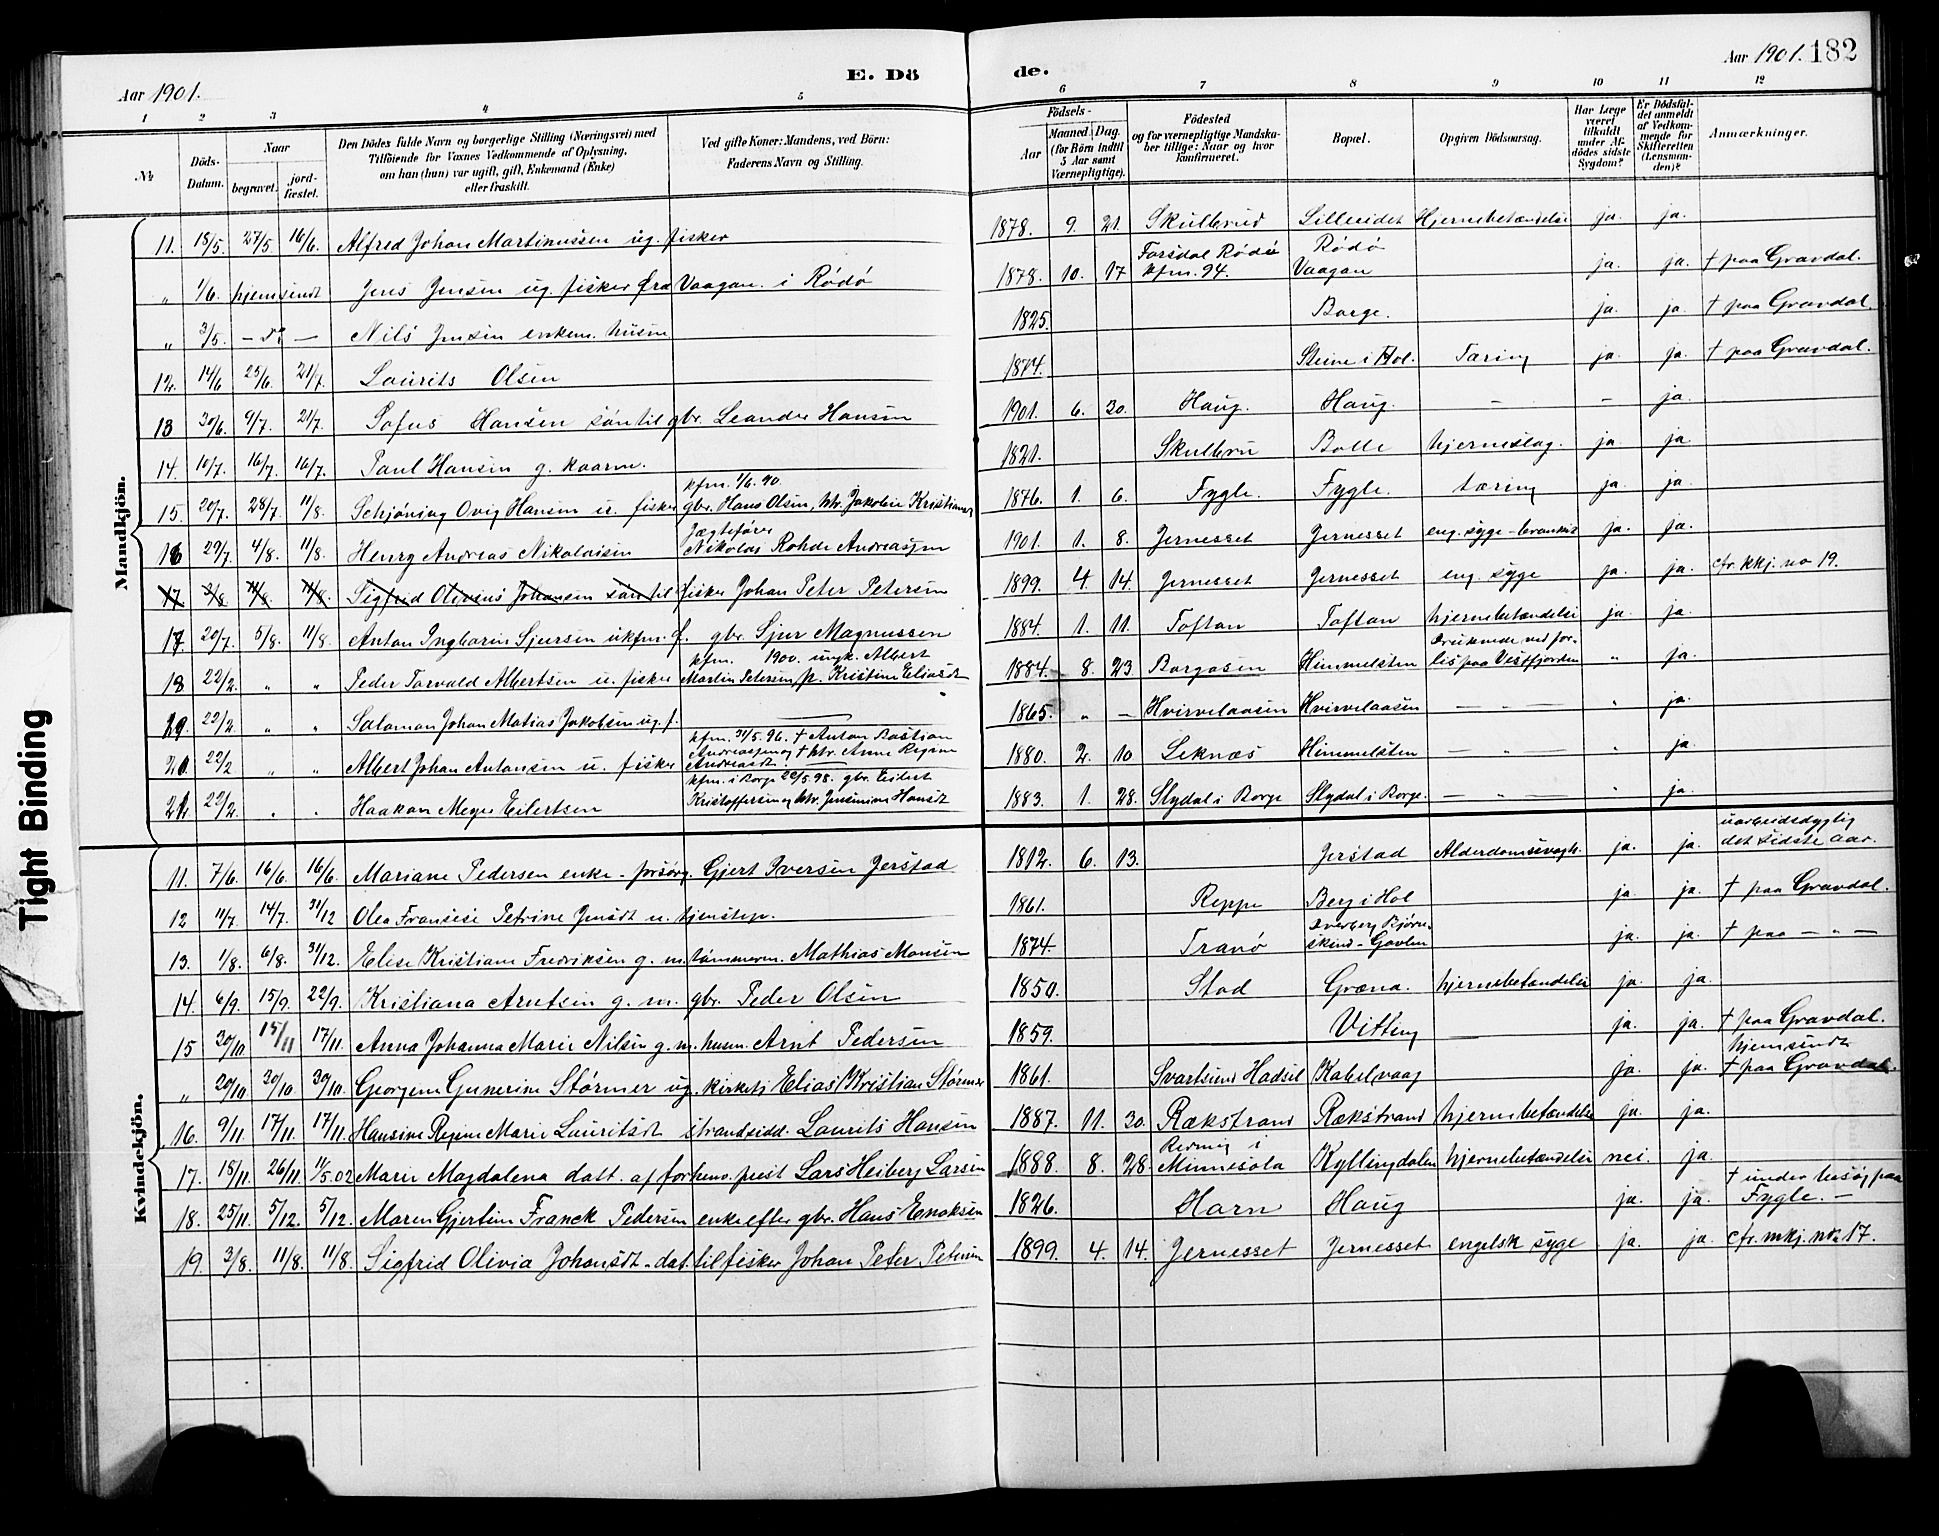 Aar 1901.
E. Dö
de.
Aar 1901.
182
1 2 3 4 5 6 7 8 9 10 11 12
№
Döds-Datum.
Naar
begravet.
jordfæstet.
Den Dödes fulde Navn og borgerlige Stilling (Næringsvei) med
Tilföiende for Voxnes Vedkommende af Oplysning,
om han (hun) var ugift, gift, Enkemand (Enke)
eller fraskilt.
Ved gifte Koner: Mandens, ved Börn:
Faderens Navn og Stilling.
Födsels-
Aar
Maaned. Dag.
(for Börn indtil
5 Aar samt
Værnepligtige).
Födested
og for værnepligtige Mandska-
ber tillige: Naar og hvor
konfirmeret.
Bopæl.
Opgiven Dödsaarsag.
Har Læge
været
tilkaldt
under Af-
dödes sidste
Sygdom?
Er Dödsfal-
det anmeldt
af Vedkom-
mende for
Skifteretten
(Lensman-
den)?
Anmærkninger.
Mandkjön.
11. 18/5. 27/5 16/6. Alfred Johan Martinussen ug. fisker 1878. 9. 21. Skulbrud Silleidet Hjernebetændelse ja. ja.
„ 1/6. hjemsendt Jens Jensen ug. fisker fra Vaagan i Rödö 1878. 10. 17 Forsdal Rödö kfm. 94. Rödö Vaagan ja. ja. † paa Gravdal.
„ 3/5. — do — Nils Jensen enkem. husm 1825. Borge. ja. ja. † paa Gravdal.
12. 14/6 23/6. 21/7. Laurits Olsen 1874. Steine i Hol. Tæring ja. ja. † paa Gravdal.
13 30/6. 9/7. 21/7. Sofus Hansen sön til gbr. Leander Hansen 1901. 6. 30. Haug. Haug. — — ja.
14. 10/7. 16/7. 16/7. Paul Hansen g. kaarm. 1821. Skulbru Bolle hjerneslag. ja. ja.
kfm. 1/6. 90.
15. 20/7. 28/7. 11/8. Schjöning Ovig Hansen u. fisker gbr. Hans Olsen, htr. Jakobine Kristiansd. 1876. 1. 6. Fygle. Fygle. tæring ja. ja.
Jægtefører
16 29/7. 4/8. 11/8. Henry Andreas Nikolaisen Nikolai Rohde Andreassen 1901. 1. 8. Jernesset Jernesset eng. syge - bronkit ja. ja.
17 3/8 11/8. 11/8. Sigfrid Olivius Johansen sön til fisker Johan Peter Petersen 1899. 4 14. Jernesset Jernesset eng. syge ja. ja. cfr. kkj. no 19.
17. 20/7. 5/8. 11/8. Anton Ingbarin Sjursen ukfm. f. gbr. Sjur Magnussen 1884. 1. 11. Toftan Toftan hjernebetændelse ja. ja.
kfm. 1900. ungk. Albert
18 22/2. „ „ Peder Torvald Albertsen u. fisker Martin Petersen, p. Kristine Eliasdt 1884. 8. 23. Borgosen Himmelsten Druknede ved forlis paa Vestfjorden „ ja.
19. 22/2. „ „ Salomon Johan Matias Jakobsen ug. f. — 1865. „ — Hvirvelaasen Hvirvelaasen — „ — „ ja.
kfm. 31/5. 96. † Anton Bastian
20. 22/2 „ „ Albert Johan Antonsen u. fisker Andreassen og † htr. Anne Regine Andreasdt. 1880. 2. 10. Leknæs Himmelsten — „ — „ ja.
kfm. i Borge 22/5. 98. gbr. Eilert
21. 22/2. „ „ Haakon Meyer Eilertsen Kristoffersen og htr. Jensmine Hansdt 1883. 1. 28. Slydal i Borge Slydal i Borge. — „ — „ ja.
Kvindekjön.
11. 7/6. 16/6. 16/6. Mariane Pedersen enke - forsörg. Gjert Iversen Jerstad 1812. 6. 13. Jerstad Alderdomssvagh. ja. ja. uarbeidsdygtig det sidste aar.
12 11/7. 14/7. 31/12 Olea Fransese Petrine Jensdt u. tjenstep. 1861. Reppe Berg i Hol ja. ja. † paa Gravdal.
13. 1/8. 6/8. 31/12. Elise Kristiane Fredriksen g. m. tömmerm. Mathias Monsen 1874. Tranö Overberg Björnskind - Gavlen ja. ja. † paa — „ —
14. 6/9. 15/9. 22/9. Kristiana Arntsen g. m. gbr. Peder Olsen 1850. Stad Græna. hjernebetændelse ja. ja.
15 30/10 15/11 17/11. Anna Johanna Marie Nilsen g. m. husm. Arnt Pedersen 1859. Vitting ja. ja. † paa Gravdal.
„ 20/10 30/10 30/10. Georgine Gunerine Störmer ug. kirkets Elias Kristian Störmer 1861. Svartsund Hadsel Kabelvaag ja. ja. hjemsendt † paa Gravdal.
16. 9/11. 17/11. 17/11. Hansine Regine Marie Lauritsdt strandsidd. Laurits Hansen 1887. 11. 30. Rækstrand Rækstrand hjernebetændelse ja. ja.
17. 18/11. 26/11. 11/5.02 Marie Magdalena datt. af forhenv. prest Lars Heiberg Larsen 1888. 8. 28. i Minnesota Kyllingdalen hjernebetændelse nei. ja.
18. 25/11. 5/12. 5/12. Maren Gjertine Franck Pedersen enke efter gbr. Hans Enoksen 1826. Horn Haug ja. ja. † under besög paa Fygle. —
19. 3/8. 11/8. 11/8. Sigfrid Olivia Johansdt - dat. til fisker Johan Peter Petersen 1899. 4. 14. Jernesset Jernesset engelsk syge ja. ja. cfr. mkj. no 17.
Tight Binding